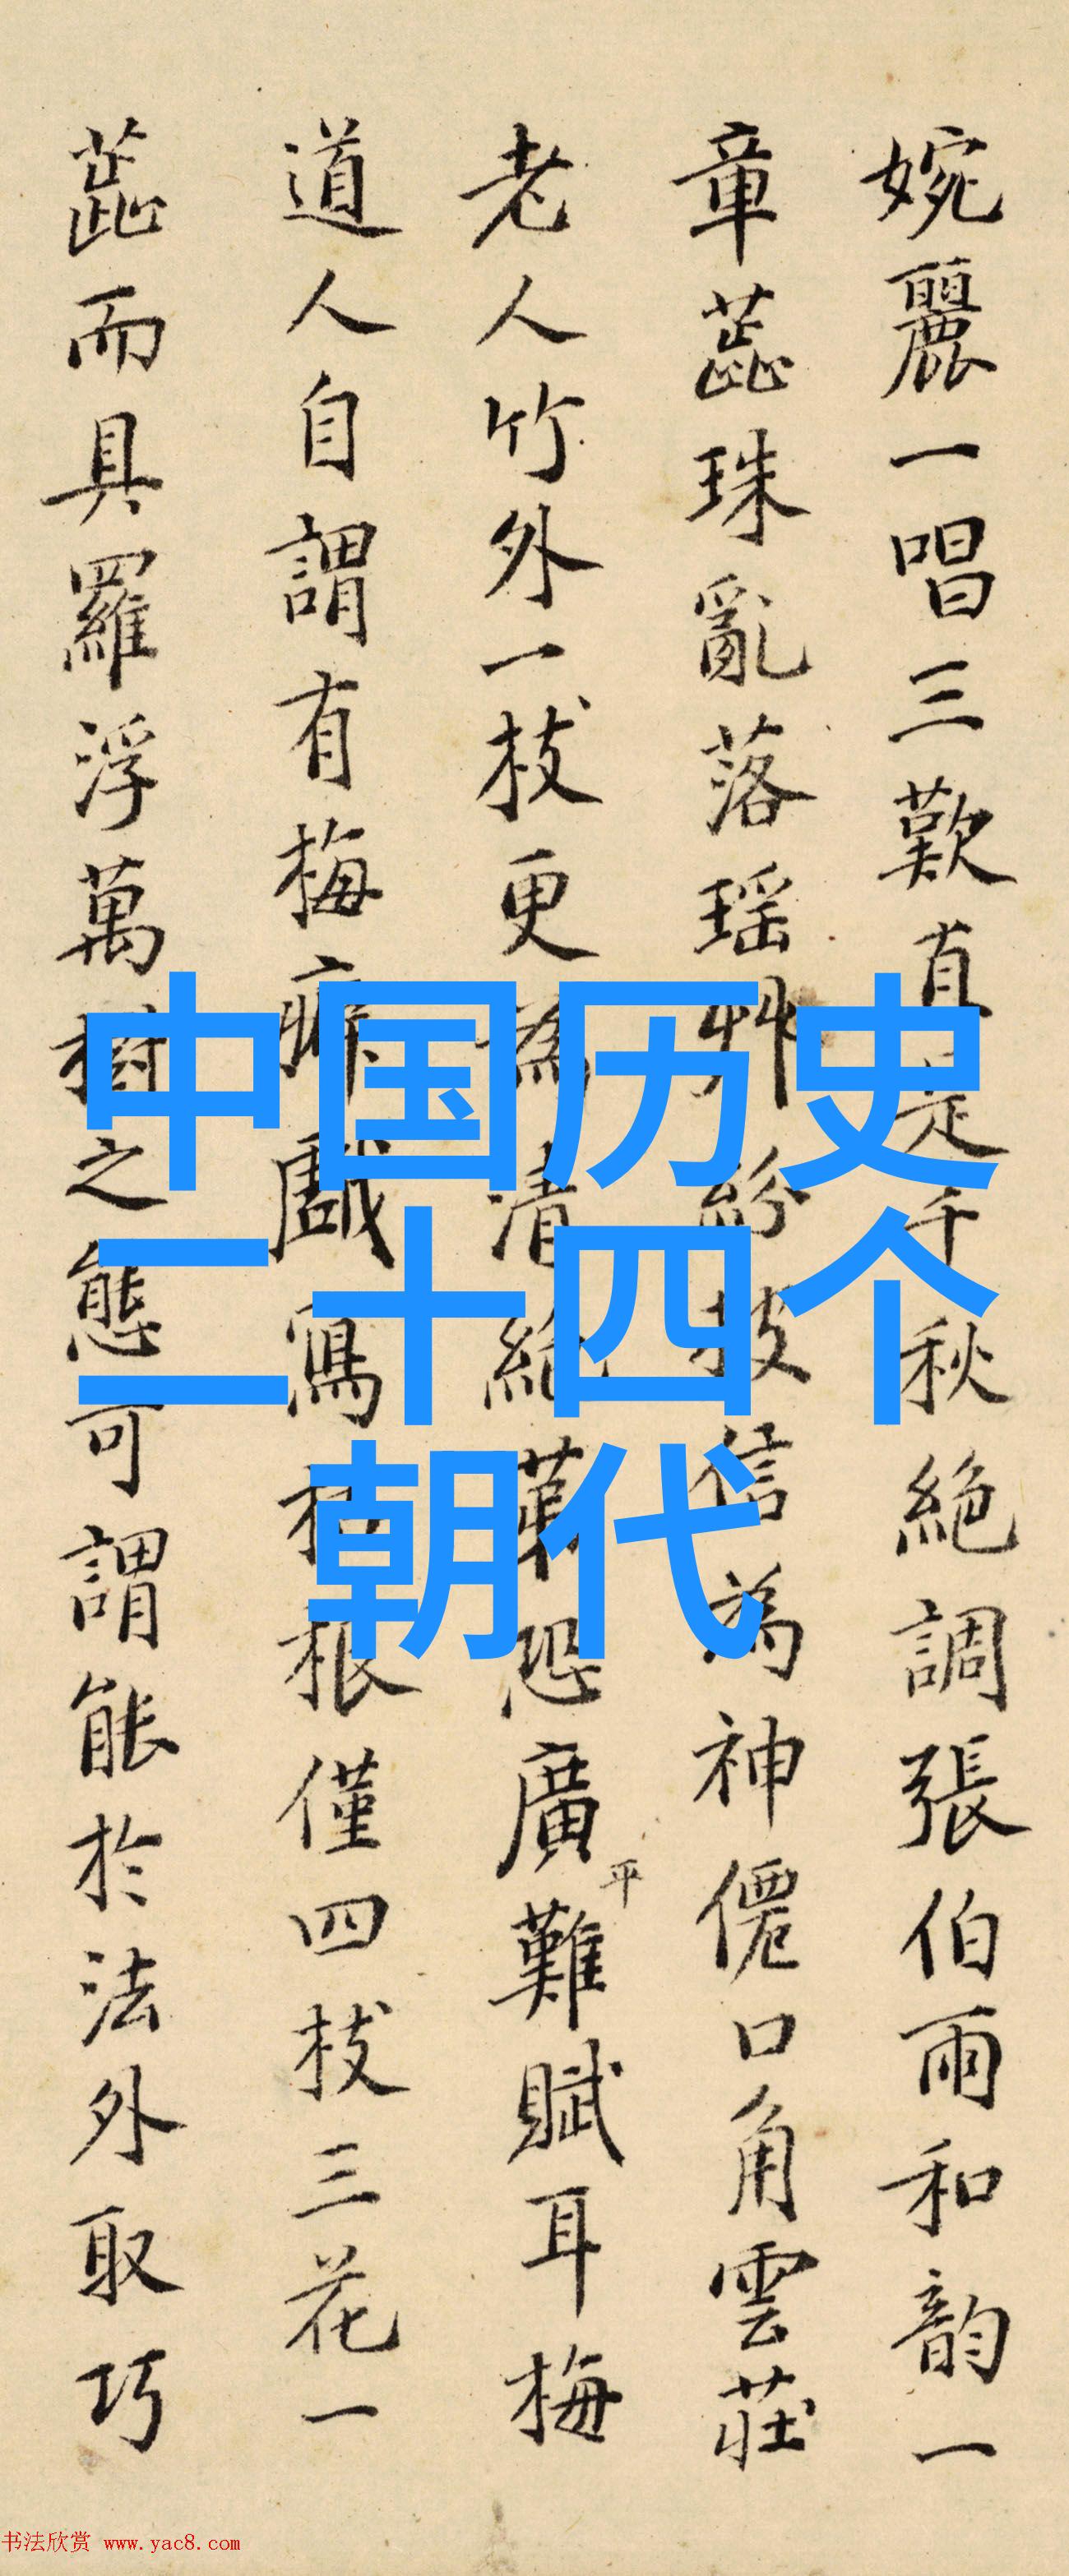 婉麗一唱三歎真是千秋絕調張伯雨和韵一
章蕋珠亂落瑶艸紛披信為神僊口角雲莊
老人竹外一枝更為清絕苐恐廣平難賦耳梅
道人自謂有梅癖戲寫根僅四枝三花一
蕋而具羅浮萬樹之態可謂能於法外取巧
中国历史
二十四个
朝代
书法欣赏 www.yac8.com